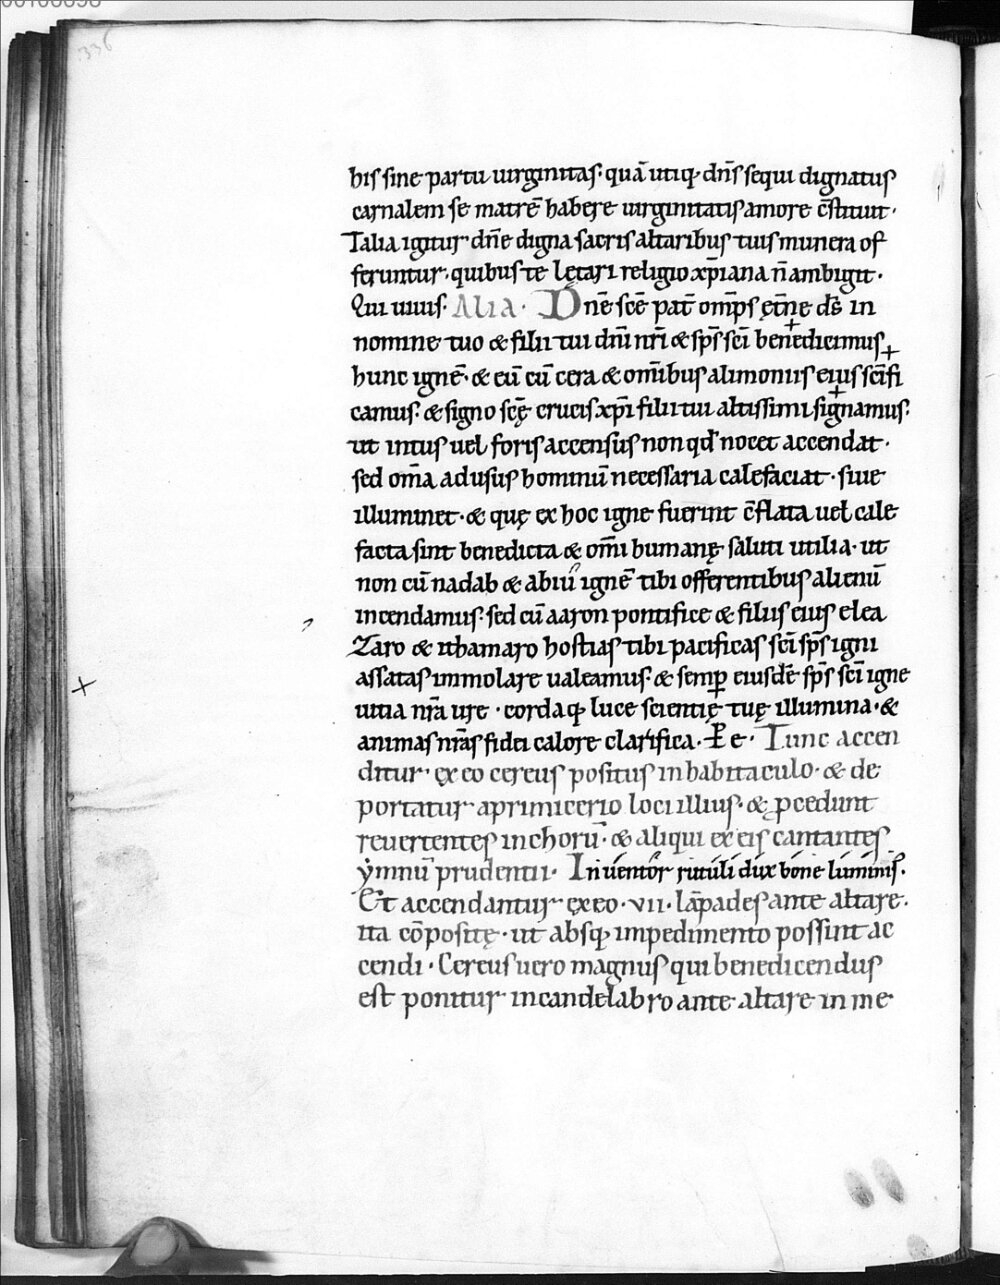 336
bis sine partu uirginitas· quā utiq; dn̄s sequi dignatus
carnalem se matrē habere uirginitatis amore c̄stituit·
Talia igitur dn̄e digna sacris altaribus tuis munera of
feruntur· quibus te lętari religio xp̄iana n̄ ambigit·
Qui uiuis· Alia· Dn̄e sc̄e pat̄ om̄ps ęt̄ne ds̄ in
nomine tuo & filii tui dn̄i nr̄i & sp̄s sc̄i benedicimus
hunc ignē· & eū cū cera & om̄ibus alimoniis eius sc̄ifi
camus· & signo sc̄ę crucis xp̄i filii tui altissimi signamus·
ut intus uel foris accensus non qd̄ nocet accendat·
sed om̄a ad usus hominū necessaria calefaciat· siue
illuminet· & quę ex hoc igne fuerint c̄flata uel cale
facta sint benedicta & om̄i humanę saluti utilia· ut
non cū nadab & abiu ignē tibi offerentibus alienū
incendamus· sed cū aaron pontifice & filiis eius elea
zaro & ithamaro hostias tibi pacificas sc̄i sp̄s igni
assatas immolare ualeamus· & semp̄ eiusdē sp̄s sc̄i igne
uitia nr̄a ure· corda q; luce scientię tuę illumina· &
animas nr̄as fidei calore clarifica· P̄ e· Tunc accen
ditur· ex eo cereus positus in habitaculo· & de
portatur a primicerio loci illius· & p̄cedunt
reuertentes in chorū· & aliqui ex eis cantantes
ẏmnū prudentii· Inuentor rutuli dux bone luminis·
Et accendantur ex eo· vii· lāpades ante altare·
ita cōpositę· ut absq; impedimento possint ac
cendi· Cereus uero magnus qui benedicendus
est ponitur in candelabro ante altare in me